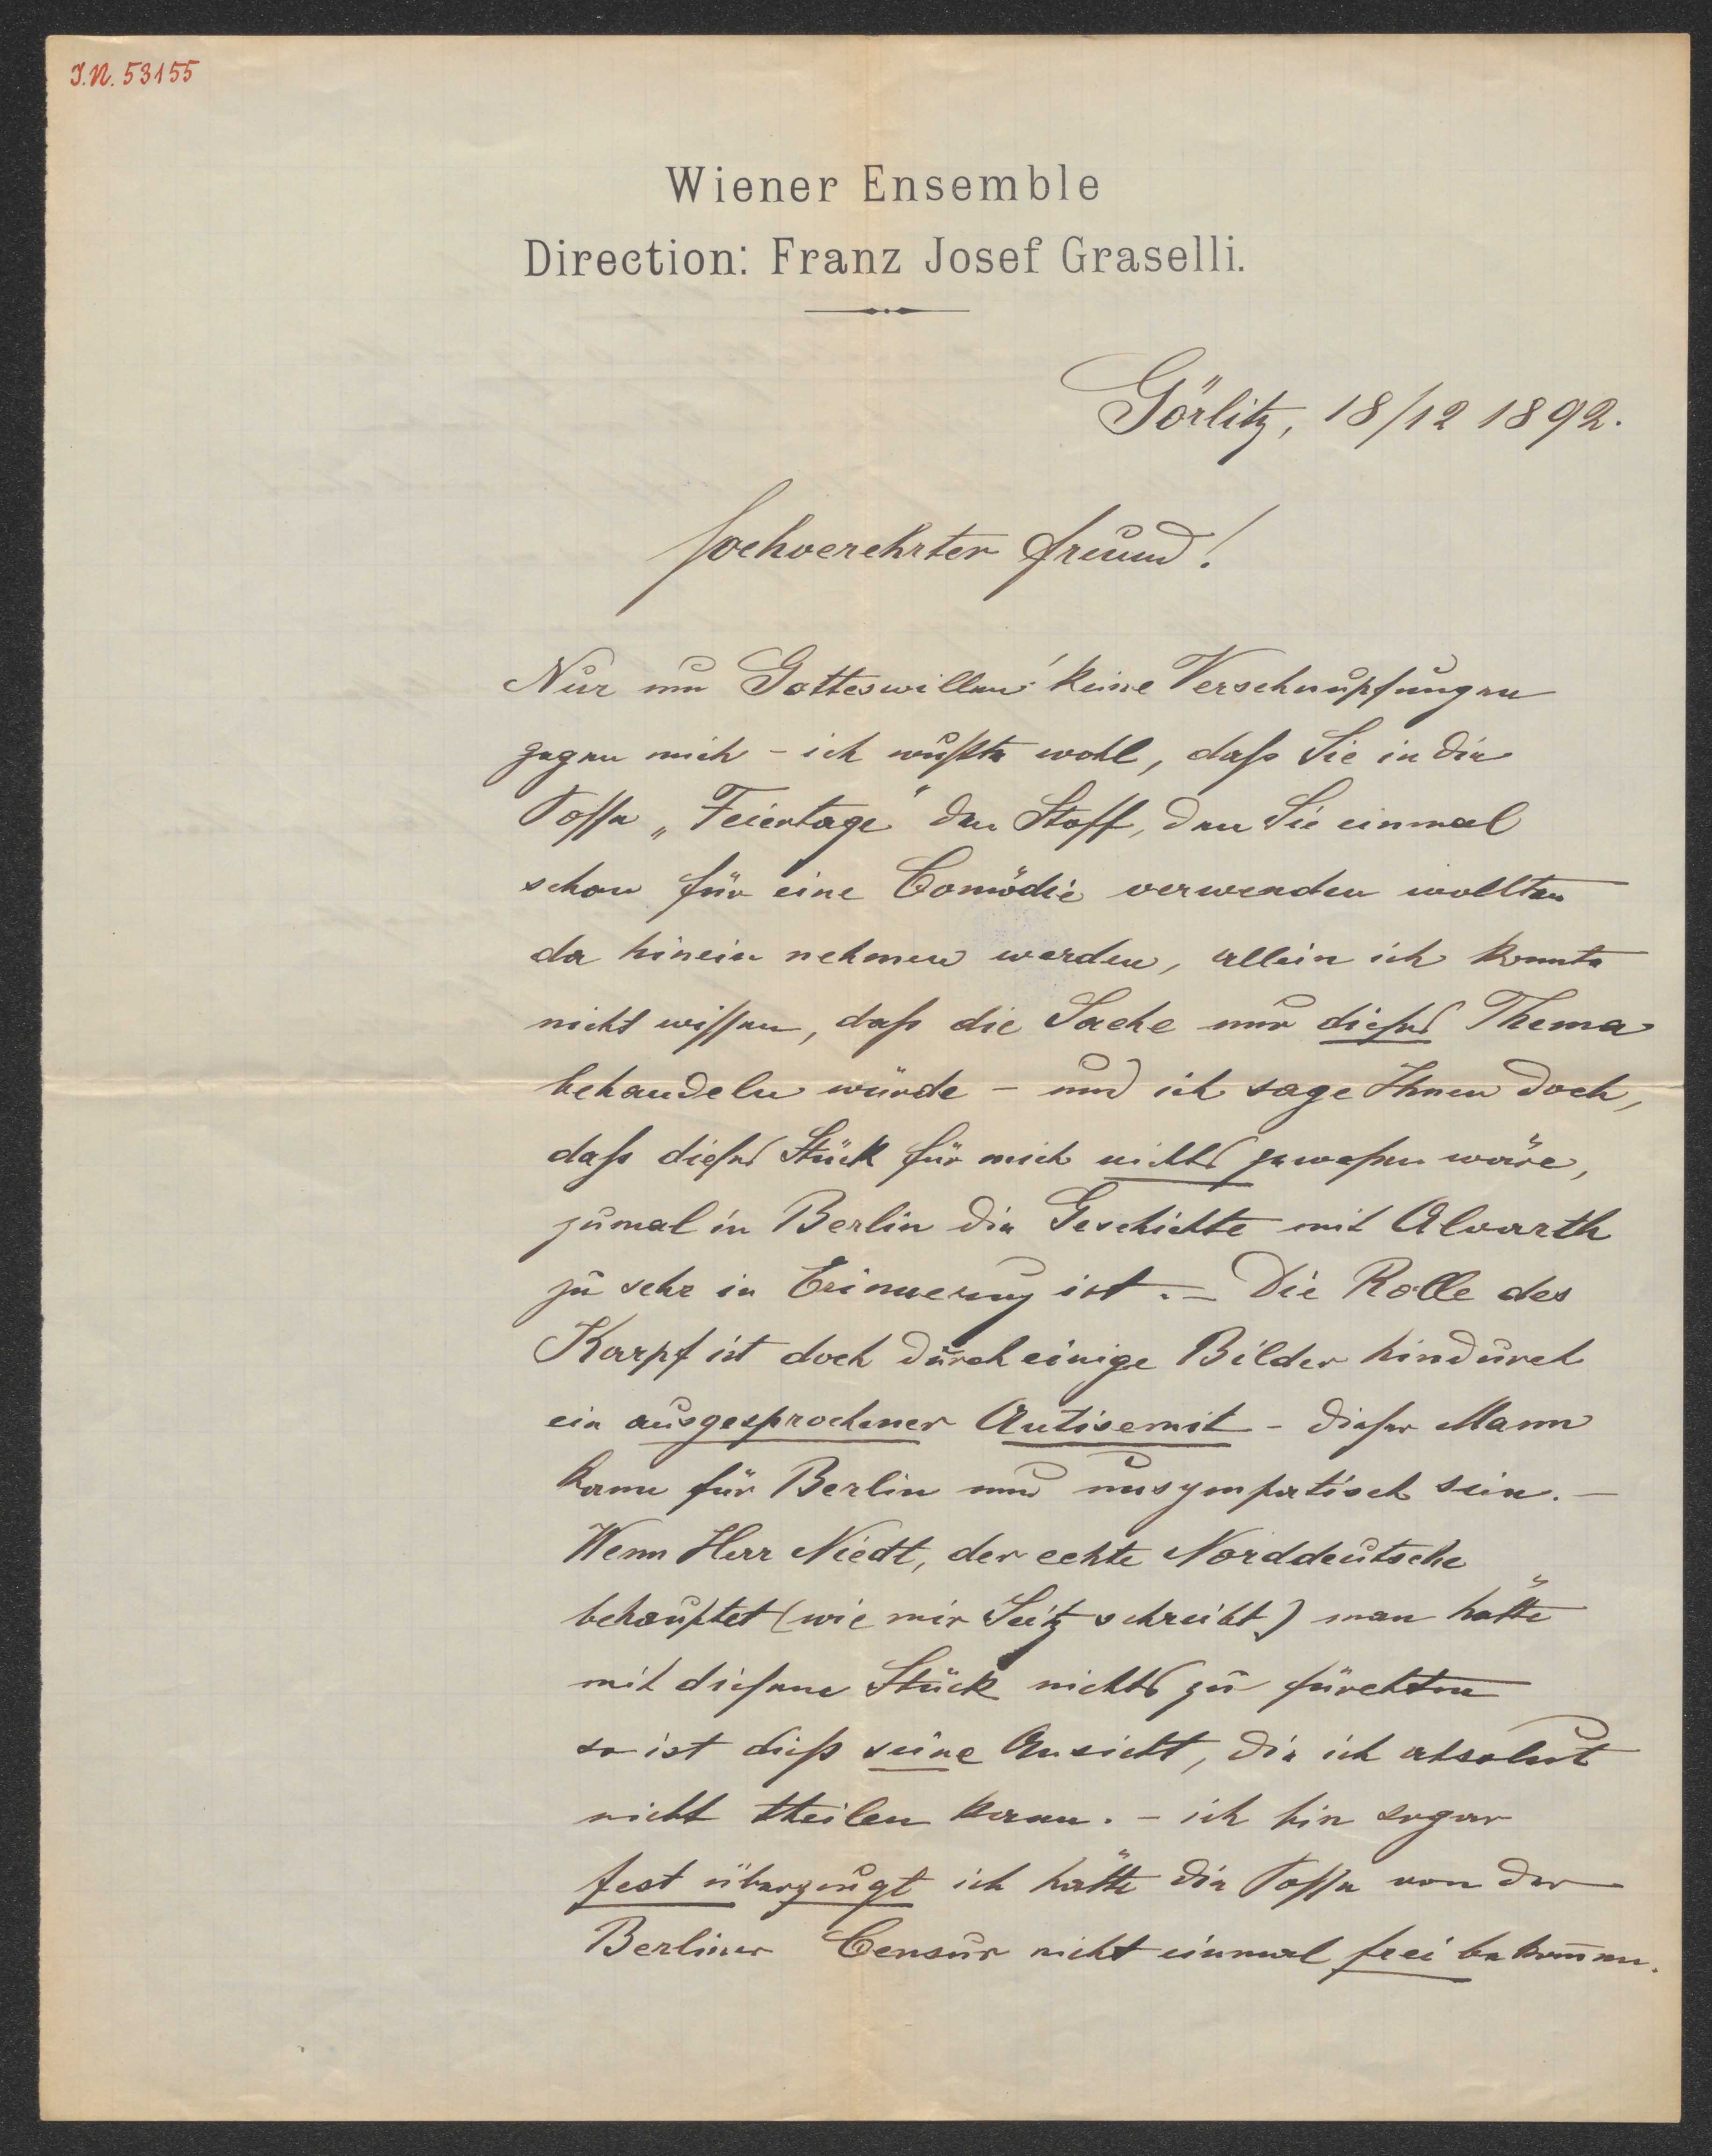 J.N. 53155
Wiener Ensemble
Direction: Franz Josef Graselli.
Görlitz, 18/12 1892.
Hochverehrter Freund!
Nur um Gotteswillen! keine Verschnupfungen
gegen mich – ich wußte wohl, daß Sie in die
Posse „Feiertage" den Stoff, den Sie einmal
schon für eine Comödie verwenden wollten
da hinein nehmen werden, allein ich konnte
nicht wissen, daß die Sache nur dieses Thema
behandeln würde – und ich sage Ihnen doch,
daß dieses Stück für mich nichts gewesen wäre,
zumal in Berlin die Geschichte mit Alvarth
zu sehr in Erinnerung ist. – Die Rolle des
Karpf ist doch durch einige Bilder hindurch
ein ausgesprochener Antisemit – dieser Mann
kann für Berlin nur unsympatisch sein. –
Wenn Herr Niedt, der echte Norddeutsche
behauptet (wie mir Seitz schreibt) man hätte
mit diesem Stück nichts zu fürchten
so ist dieß seine Ansicht, die ich absolut
nicht theilen kann. – ich bin sogar
fest überzeugt ich hätte die Posse von der
Berliner Censur nicht einmal frei bekom̅en.